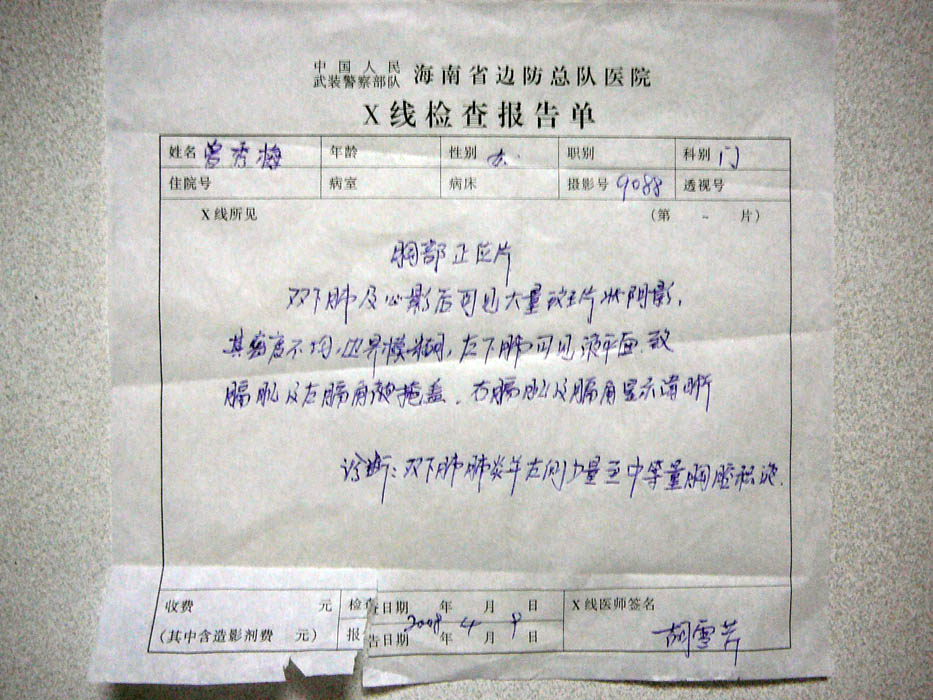 中国人民
武装警察部队 海南省边防总队医院
X线检查报告单
姓名 曾秀梅 年龄 性别 女 职别 科别 门
住院号 病室 病床 摄影号 9088 透视号
X线所见 (第 - 片)
胸部正位片
双下肺及心影后可见大量斑片状阴影,
其密度不均,边界模糊,左下肺可见液平面,致
膈肌及左膈角被掩盖,右膈肌及膈角显示清晰
诊断:双下肺肺炎并左侧少量至中等量胸腔积液.
收费 元 检查日期 年 月 日 X线医师签名
(其中含造影剂费 元) 报告日期 2008年4月9日 胡雪芳